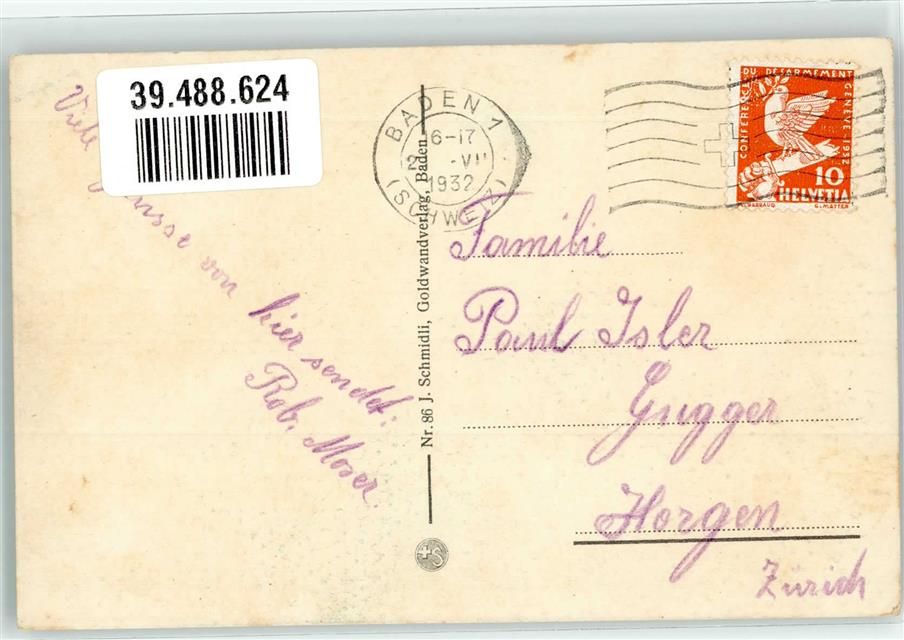 39.488.624
Viele
Grüsse von
hier sendet:
Rob. Moser.
Nr. 86 J. Schmidli, Goldwandverlag, Baden
BADEN 1
(SCHWEIZ)
6-17
2 -VII
1932
CONFERENCE DU DESARMEMENT GENEVE-1932
10
HELVETIA
G. MATTER
Familie
Paul Isler
Gugger
Horgen
Zürich
+S